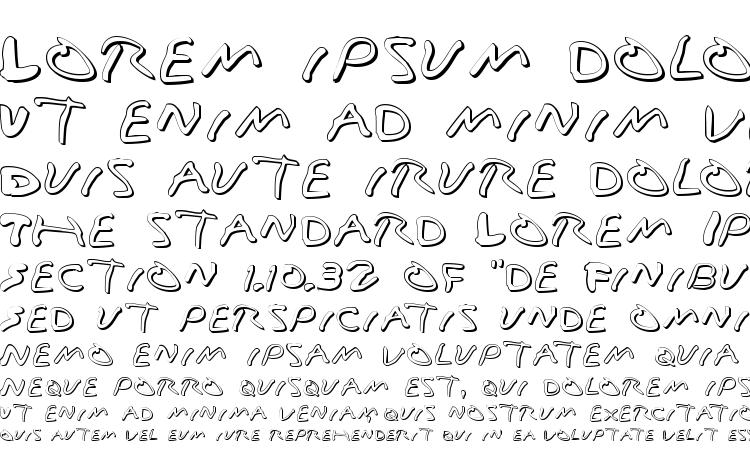 LOREM IPSUM DOLO
UT ENIM AD MINIM V
DUIS AUTE IRURE DOLO
THE STANDARD LOREM IP
SECTION 1.10.32 OF "DE FINIBU
SED UT PERSPICIATIS UNDE OMNI
NEMO ENIM IPSAM VOLUPTATEM QUIA
NEQUE PORRO QUISQUAM EST, QUI DOLOREM IPS
UT ENIM AD MINIMA VENIAM, QUIS NOSTRUM EXERCITATIO
QUIS AUTEM VEL EUM IURE REPREHENDERIT QUI IN EA VOLUPTATE VELIT ESS